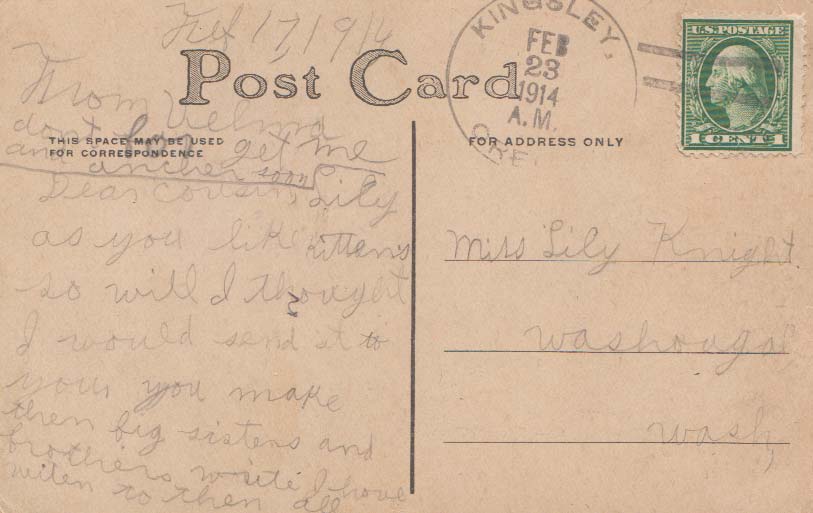 Feb 17, 1914
Post Card
From Velma
dont forget me
THIS SPACE MAY BE USED
FOR CORRESPONDENCE
and ancher soon
Dear cousin, Lily
as you like kittens
so will I thought
I would send it to
your you make
then big sisters and
brothers write I have
writen to then all
KINGSLEY,
FEB
23
1914
A.M.
ORE.
U.S. POSTAGE
1 CENT 1
FOR ADDRESS ONLY
Miss Lily Knight
washougal
wash,